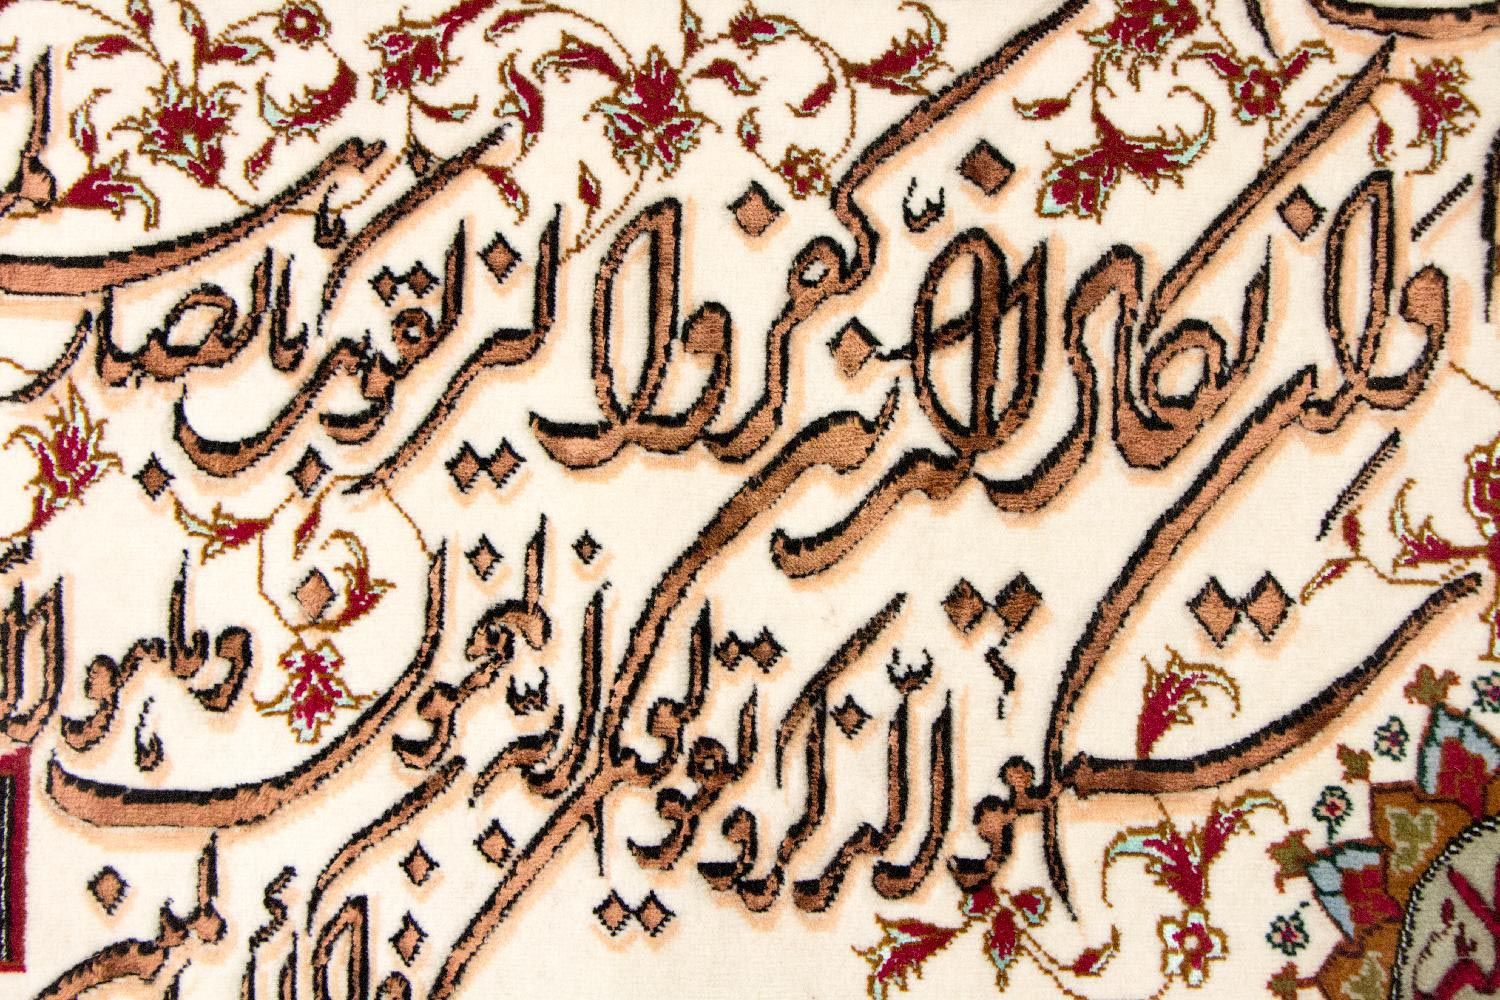 وَاِنْ یکاد الّذین کفروا لیزلقونک بابصارهم
سمعوا الذّکر و یقولون انّه لمجنون و ما هو الا